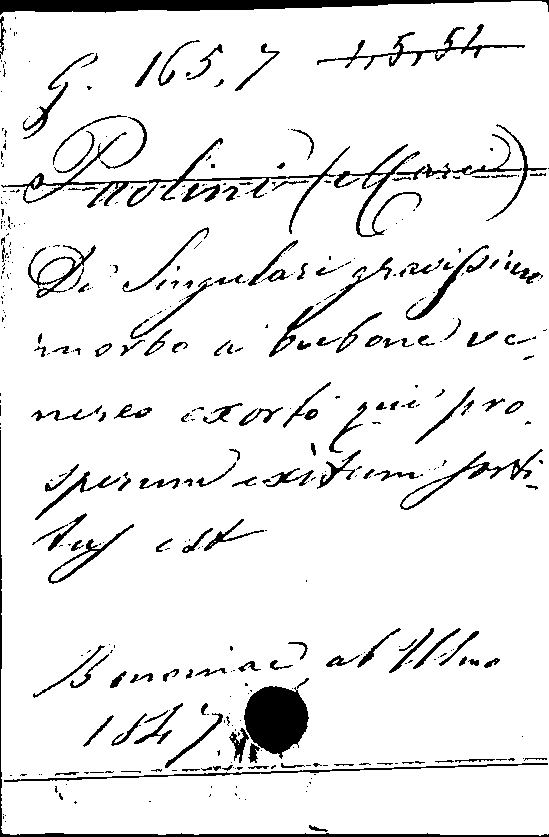 G. 165,7 1,5,54
Paolini (Marci)
De Singulari gravissimo
morbo a bubone ve-
nereo exorto qui pro-
sperum exitum sorti-
tus est
Bononiae, ab Ulmo
1847